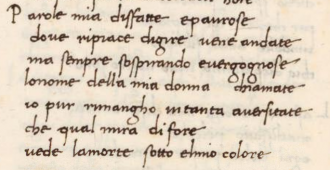 Parole mia disfatte epaurose
dove ripiace digire vene andate
ma sempre sospirando evergognose
lonome della mia donna chiamate
io pur rimangho intanta aversitate
che qual mira difore
vede lamorte sotto elmio colore